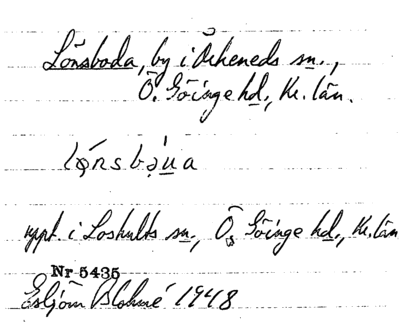 Lönsboda, by i Örkeneds sn.,
Ö. Göinge hd., Kr. län.
lǫ́nsbə̀ua
uppt. i Loshults sn., Ö. Göinge hd., Kr. län
Nr 5435
Esbjörn Blohmé 1948